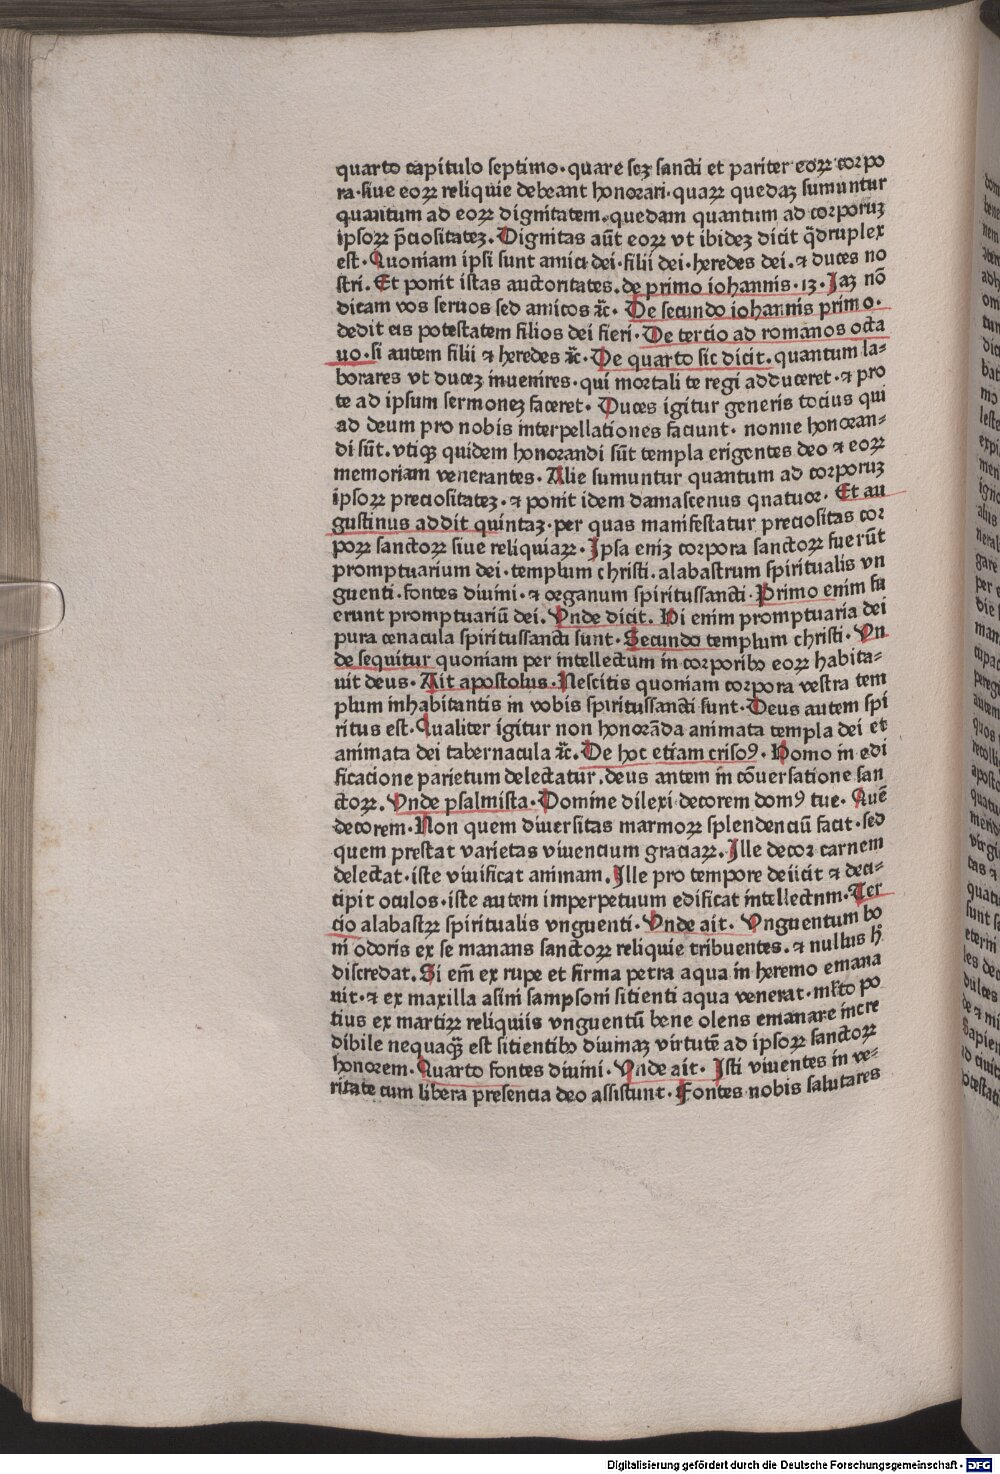 quarto capitulo septimo·quare sez sancti et pariter eoꝝ corpo
ra·siue eoꝝ reliquie debeant honorari·quaꝝ quedaz sumuntur
quantum ad eoꝝ dignitatem·quedam quantum ad corporuz
ipsoꝝ p̄ciositatez. Dignitas aūt eoꝝ vt ibidez dicit q̄druplex
est·Quoniam ipsi sunt amici dei·filii dei·heredes dei.⁊ duces no
stri. Et ponit istas auctoritates. de primo iohannis·13·Jaz nō
dicam vos seruos sed amicos ⁊c̄· De secundo iohannis primo·
dedit eis potestatem filios dei fieri·De tercio ad romanos octa
uo·si autem filii ⁊ heredes ⁊c̄·De quarto sic dicit. quantum la⸗
borares vt ducez inuenires·qui mortali te regi adduceret·⁊ pro
te ad ipsum sermonez faceret· Duces igitur generis tocius qui
ad deum pro nobis interpellationes faciunt· nonne honoran⸗
di sūt. vtiqꝫ quidem honorandi sūt templa erigentes deo ⁊ eoꝝ
memoriam venerantes· Alie sumuntur quantum ad corporuz
ipsoꝝ preciositatez·⁊ ponit idem damascenus qnatuor· Et au
gustinus addit quintaz·per quas manifestatur preciositas cor
poꝝ sanctoꝝ siue reliquiaꝝ·Ipsa eniz corpora sanctoꝝ fuerūt
promptuarium dei·templum christi.alabastrum spiritualis vn
guenti·fontes diuini·⁊ organum spiritussancti·Primo enim fu
erunt promptuariū dei. Vnde dicit. Hi enim promptuaria dei
pura cenacula spiritussancti sunt·Secundo templum christi·Vn
de sequitur quoniam per intellectum in corporibꝰ eoꝝ habita⸗
uit deus·Ait apostolus·Nescitis quoniam corpora vestra tem
plum inhabitantis in vobis spiritussancti sunt·Deus autem spi
ritus est·Qualiter igitur non honorāda animata templa dei et
animata dei tabernacula ⁊c̄. De hoc etiam crisoꝰ·Homo in edi
ficatione parietum delectatur.deus antem in cōuersatione san
ctoꝝ. Vnde psalmista·Domine dilexi decorem domꝰ tue· Quē
decorem·Non quem diuersitas marmoꝝ splendenciū facit·sed
quem prestat varietas viuencium graciaꝝ. Ille decor carnem
delectat·iste viuificat animam. Ille pro tempore deiicit ⁊ deci⸗
cipit oculos·iste autem imperpetuum edificat intellectnm·Ter
cio alabastꝝ spiritualis vnguenti·Vnde ait. Vnguentum bo
ni odoris ex se manans sanctoꝝ reliquie tribuentes.⁊ nullus h̊
discredat. Si em̄ ex rupe et firma petra aqua in heremo emana
uit·⁊ ex maxilla asini sampsoni sitienti aqua venerat·ml̄to po
tius ex martiꝝ reliquiis vnguentū bene olens emanare incre
dibile nequaqꝫ̄ est sitientibꝰ diuinaz virtutē ad ipsoꝝ sanctoꝝ
honorem·Quarto fontes diuini·Vnde ait· Isti viuentes in ve⸗
ritate cum libera presencia deo assistunt·Fontes nobis salutares
Digitalisierung gefördert durch die Deutsche Forschungsgemeinschaft - DFG